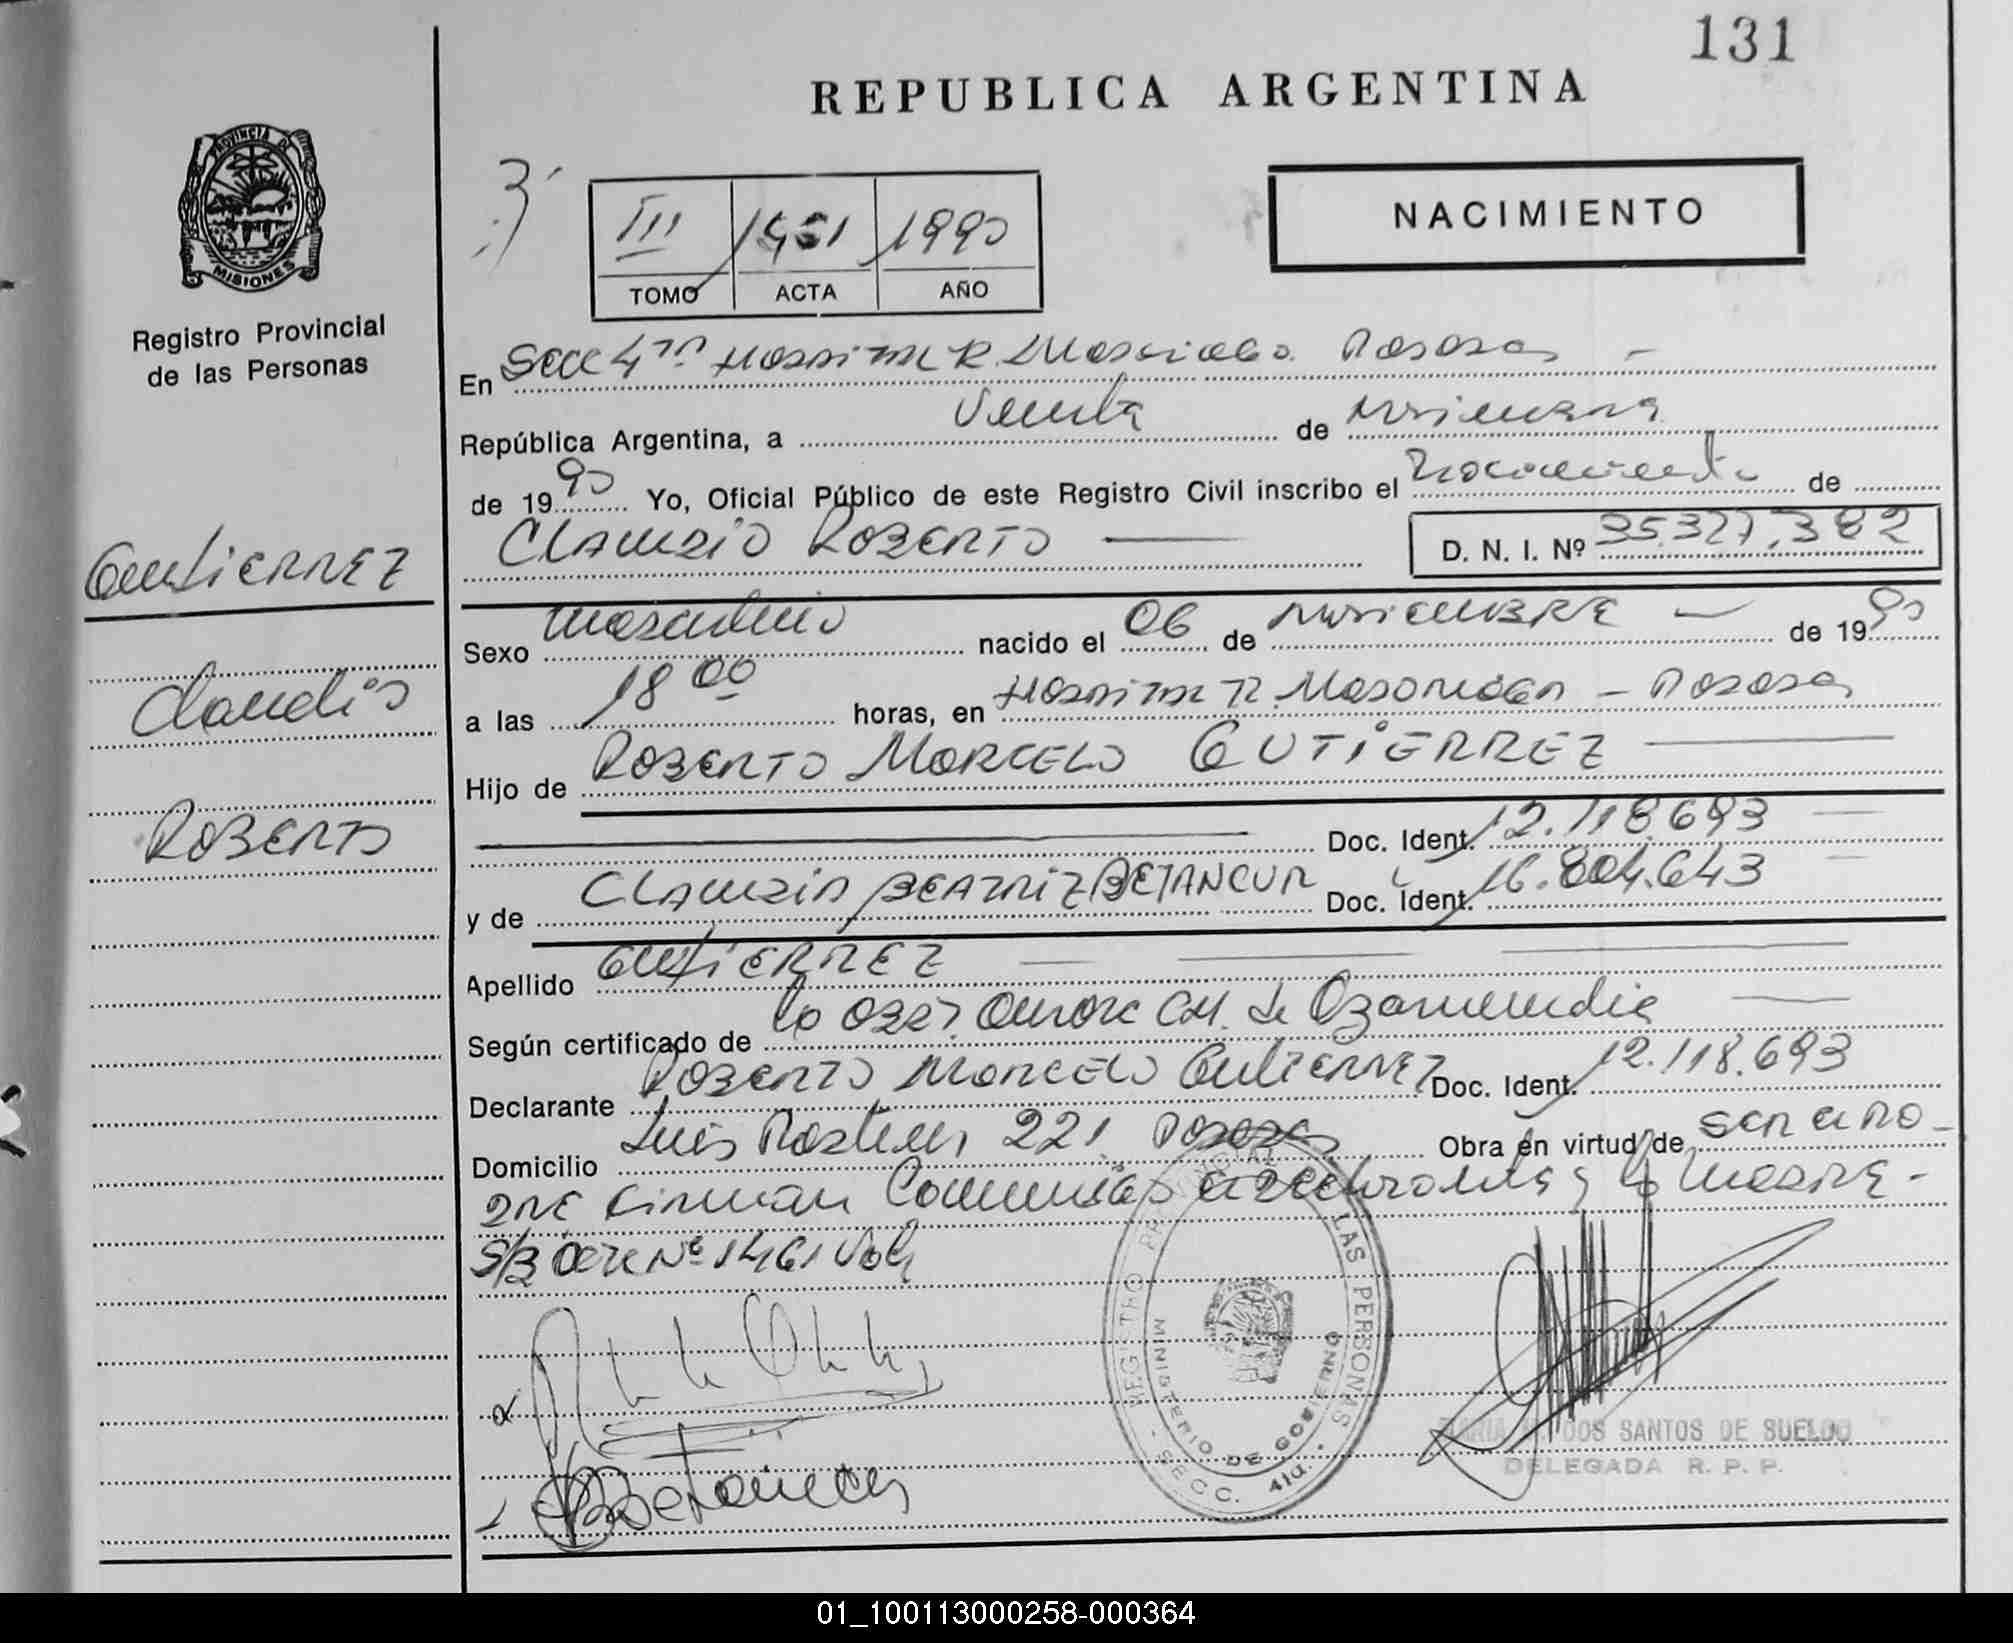 131
REPUBLICA ARGENTINA
PROVINCIA DE
MISIONES
Registro Provincial
de las Personas
III 1990
TOMO ACTA AÑO
NACIMIENTO
En Secc 4ta Hospital R. Posadas
República Argentina, a Veinte de Noviembre
de 1990 Yo, Oficial Público de este Registro Civil inscribo el Nacimiento de
CLAUDIO ROBERTO
D. N. I. Nº 35.327.382
GUTIERREZ
Claudio
ROBERTO
Sexo masculino nacido el 06 de NOVIEMBRE de 1990
a las 18 00 horas, en Hospital R. Madariaga - Posadas
Hijo de ROBERTO MARCELO GUTIERREZ
Doc. Ident. 12.118.693
y de CLAUDIA BEATRIZ BETANCUR Doc. Ident. 16.804.643
Apellido GUTIERREZ
Según certificado de la Obst. Aurora CH. de Ozamendia
Declarante ROBERTO MARCELO GUTIERREZ Doc. Ident. 12.118.693
Domicilio Luis Pasteur 221 Posadas Obra en virtud de ser el PA-
DRE firman el declarante y la MADRE-
S/B Acta Nº 1461 Vale
REGISTRO PROVINCIAL DE LAS PERSONAS
MINISTERIO DE GOBIERNO
- SECC. 4ta. -
Betancur
MARIA DOS SANTOS DE SUELDO
DELEGADA R. P. P.
01_100113000258-000364